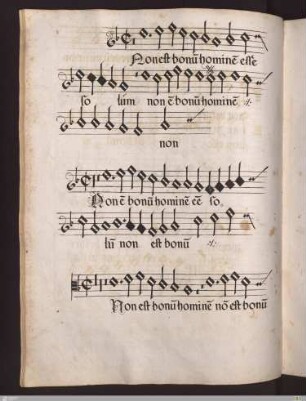 Non est bonū hominē esse
so lum non ē bonū hominē
non
Non ē bonū hominē eē so
lū non est bonū
Non est bonū hominē nō est bonū